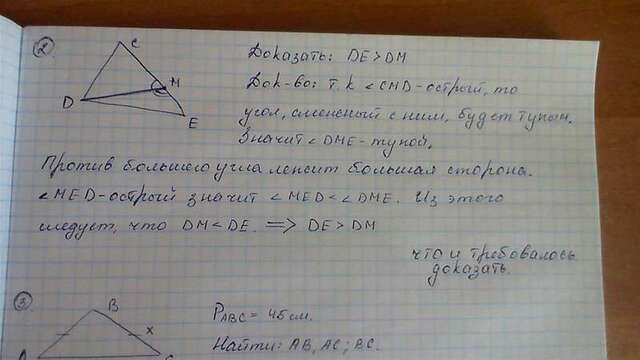 2
C
M
D
E
Доказать: DE>DM
Док-во: т.к ∠CMD-острый, то
угол, смежный с ним, будет тупым.
Значит ∠DME-тупой.
Против большего угла лежит большая сторона.
∠MED-острый значит ∠MED<∠DME. Из этого
следует, что DM<DE. ⟹ DE>DM
что и требовалось
доказать.
3
B
x
A
C
P_ABC = 45см.
Найти: AB, AC; BC.